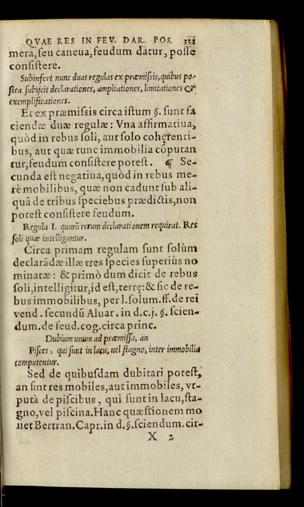 QVAE RES IN FEV. DAR. POS. 323
mera, seu caneua, feudum datur, posse
consistere.
Subinfert nunc duas regulas ex præmissis, quibus po-
stea subijcit declarationes, ampliationes, limitationes &
exemplificationes.
Et ex præmissis circa istum §. sunt fa
ciendæ duæ regulæ: Vna affirmatiua,
quòd in rebus soli, aut solo cohęrenti-
bus, aut quæ tunc immobilia cōputan
tur, feudum consistere potest. ¶ Se-
cunda est negatiua, quòd in rebus me-
rè mobilibus, quæ non cadunt sub ali-
quâ de tribus speciebus prædictis, non
potest consistere feudum.
Regula I. quarū rerum declarationem requirat. Res
soli quæ intelligantur.
Circa primam regulam sunt solùm
declarādæ illæ tres species superiùs no
minatæ: & primò dum dicit de rebus
soli, intelligitur, id est, terrę: & sic de re-
bus immobilibus, per l. solum. ff. de rei
vend. secundū Aluar. in d. c. j. §. scien-
dum. de feud. cog. circa princ.
Dubium unum ad præmissa, an
Pisces, qui sunt in lacu, uel stagno, inter immobilia
computentur.
Sed de quibusdam dubitari potest,
an sint res mobiles, aut immobiles, vt-
putà de piscibus, qui sunt in lacu, sta-
gno, vel piscina. Hanc quæstionem mo
uet Bertran. Capr. in d. §. sciendum. cir-
X 2